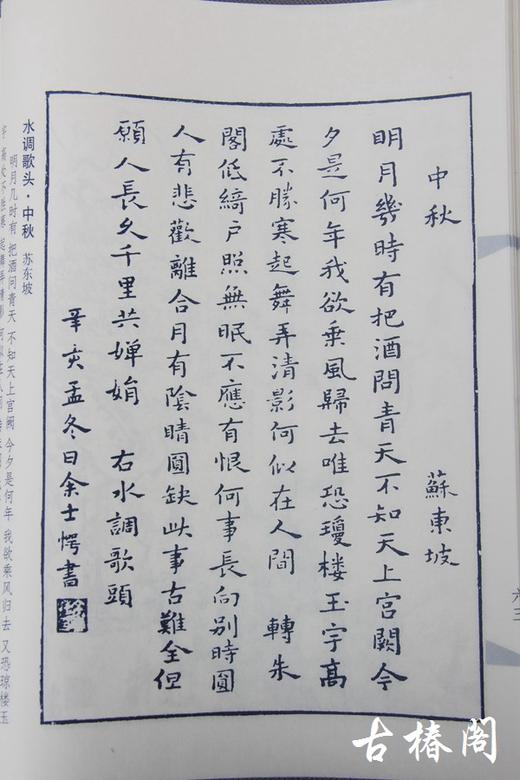 中秋 蘇東坡
明月幾時有把酒問青天不知天上宮闕今
夕是何年我欲乗風歸去唯恐瓊楼玉宇高
處不勝寒起舞弄清影何似在人間 轉朱
閣低綺户照無眠不應有恨何事長向別時圓
人有悲歡離合月有陰晴圓缺此事古難全但
願人長久千里共嬋娟 右水調歌頭
辛亥孟冬日余士愕書
水调歌头·中秋 苏东坡
明月几时有 把酒问青天 不知天上宫阙 今夕是何年 我欲乘风归去 又恐琼楼玉
六三
古椿阁